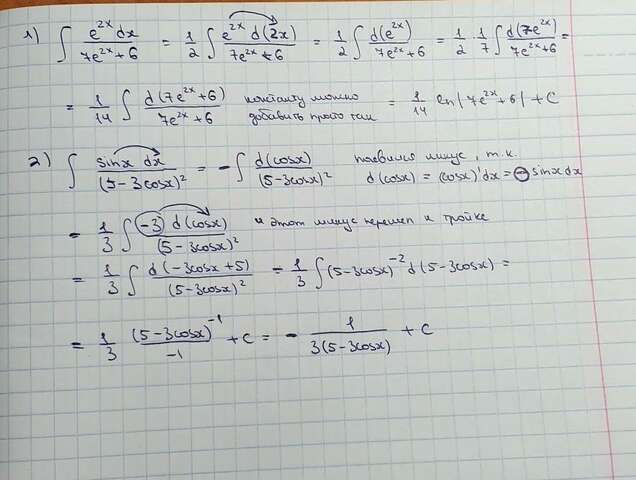 1) ∫ e^{2x} dx / (7e^{2x} + 6) = 1/2 ∫ e^{2x} d(2x) / (7e^{2x} + 6) = 1/2 ∫ d(e^{2x}) / (7e^{2x} + 6) = 1/2 · 1/7 ∫ d(7e^{2x}) / (7e^{2x} + 6) =
= 1/14 ∫ d(7e^{2x} + 6) / (7e^{2x} + 6) константу можно добавить просто так = 1/14 ln|7e^{2x} + 6| + C
2) ∫ sinx dx / (5 - 3cosx)^2 = - ∫ d(cosx) / (5 - 3cosx)^2 появился минус, т.к. d(cosx) = (cosx)' dx = - sinx dx
= 1/3 ∫ (-3) d(cosx) / (5 - 3cosx)^2 и этот минус перешел к тройке
= 1/3 ∫ d(-3cosx + 5) / (5 - 3cosx)^2 = 1/3 ∫ (5 - 3cosx)^{-2} d(5 - 3cosx) =
= 1/3 (5 - 3cosx)^{-1} / -1 + C = - 1 / 3(5 - 3cosx) + C